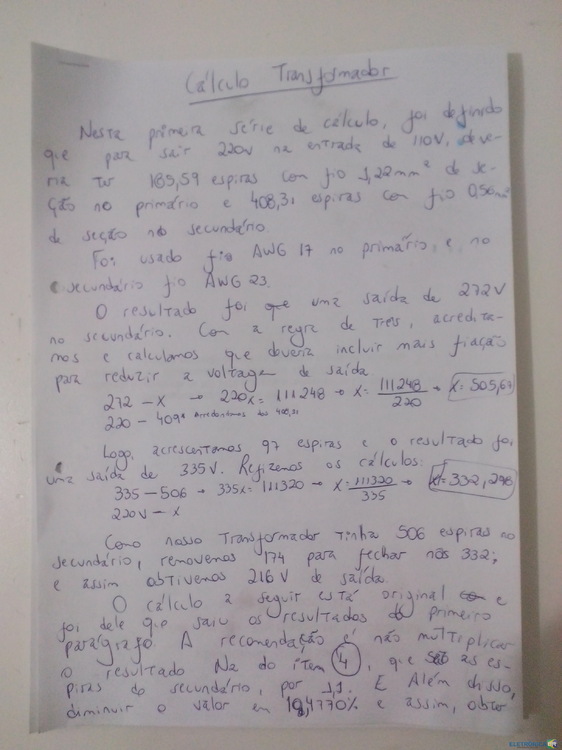 Cálculo Transformador
Nesta primeira série de cálculo, foi definido
que para sair 220v na entrada de 110V, deve-
ria ter 185,59 espiras com fio 1,22mm² de se-
ção no primário e 408,31 espiras com fio 0,56m²
de seção no secundário.
Foi usado fio AWG 17 no primário, e no
secundário fio AWG 23.
O resultado foi que uma saída de 272V
no secundário. Com a regra de três, acredita-
mos e calculamos que deveria incluir mais fiação
para reduzir a voltagem de saída.
272 - X → 220X = 111248 → X = 111248/220 → X = 505,67
220 - 409* Arredondamos dos 408,31
Logo, acrescentamos 97 espiras e o resultado foi
uma saída de 335V. Refizemos os cálculos:
335 - 506 → 335X = 111320 → X = 111320/335 → X = 332,298
220V - X
Como nosso transformador tinha 506 espiras no
secundário, removemos 174 para fechar nos 332;
e assim obtivemos 216V de saída.
O cálculo a seguir está original e
foi dele que saiu os resultados do primeiro
parágrafo. A recomendação é não multiplicar
o resultado Na do item 4, que são as es-
piras do secundário, por 1,1. E Além disso,
diminuir o valor em % e assim, obter